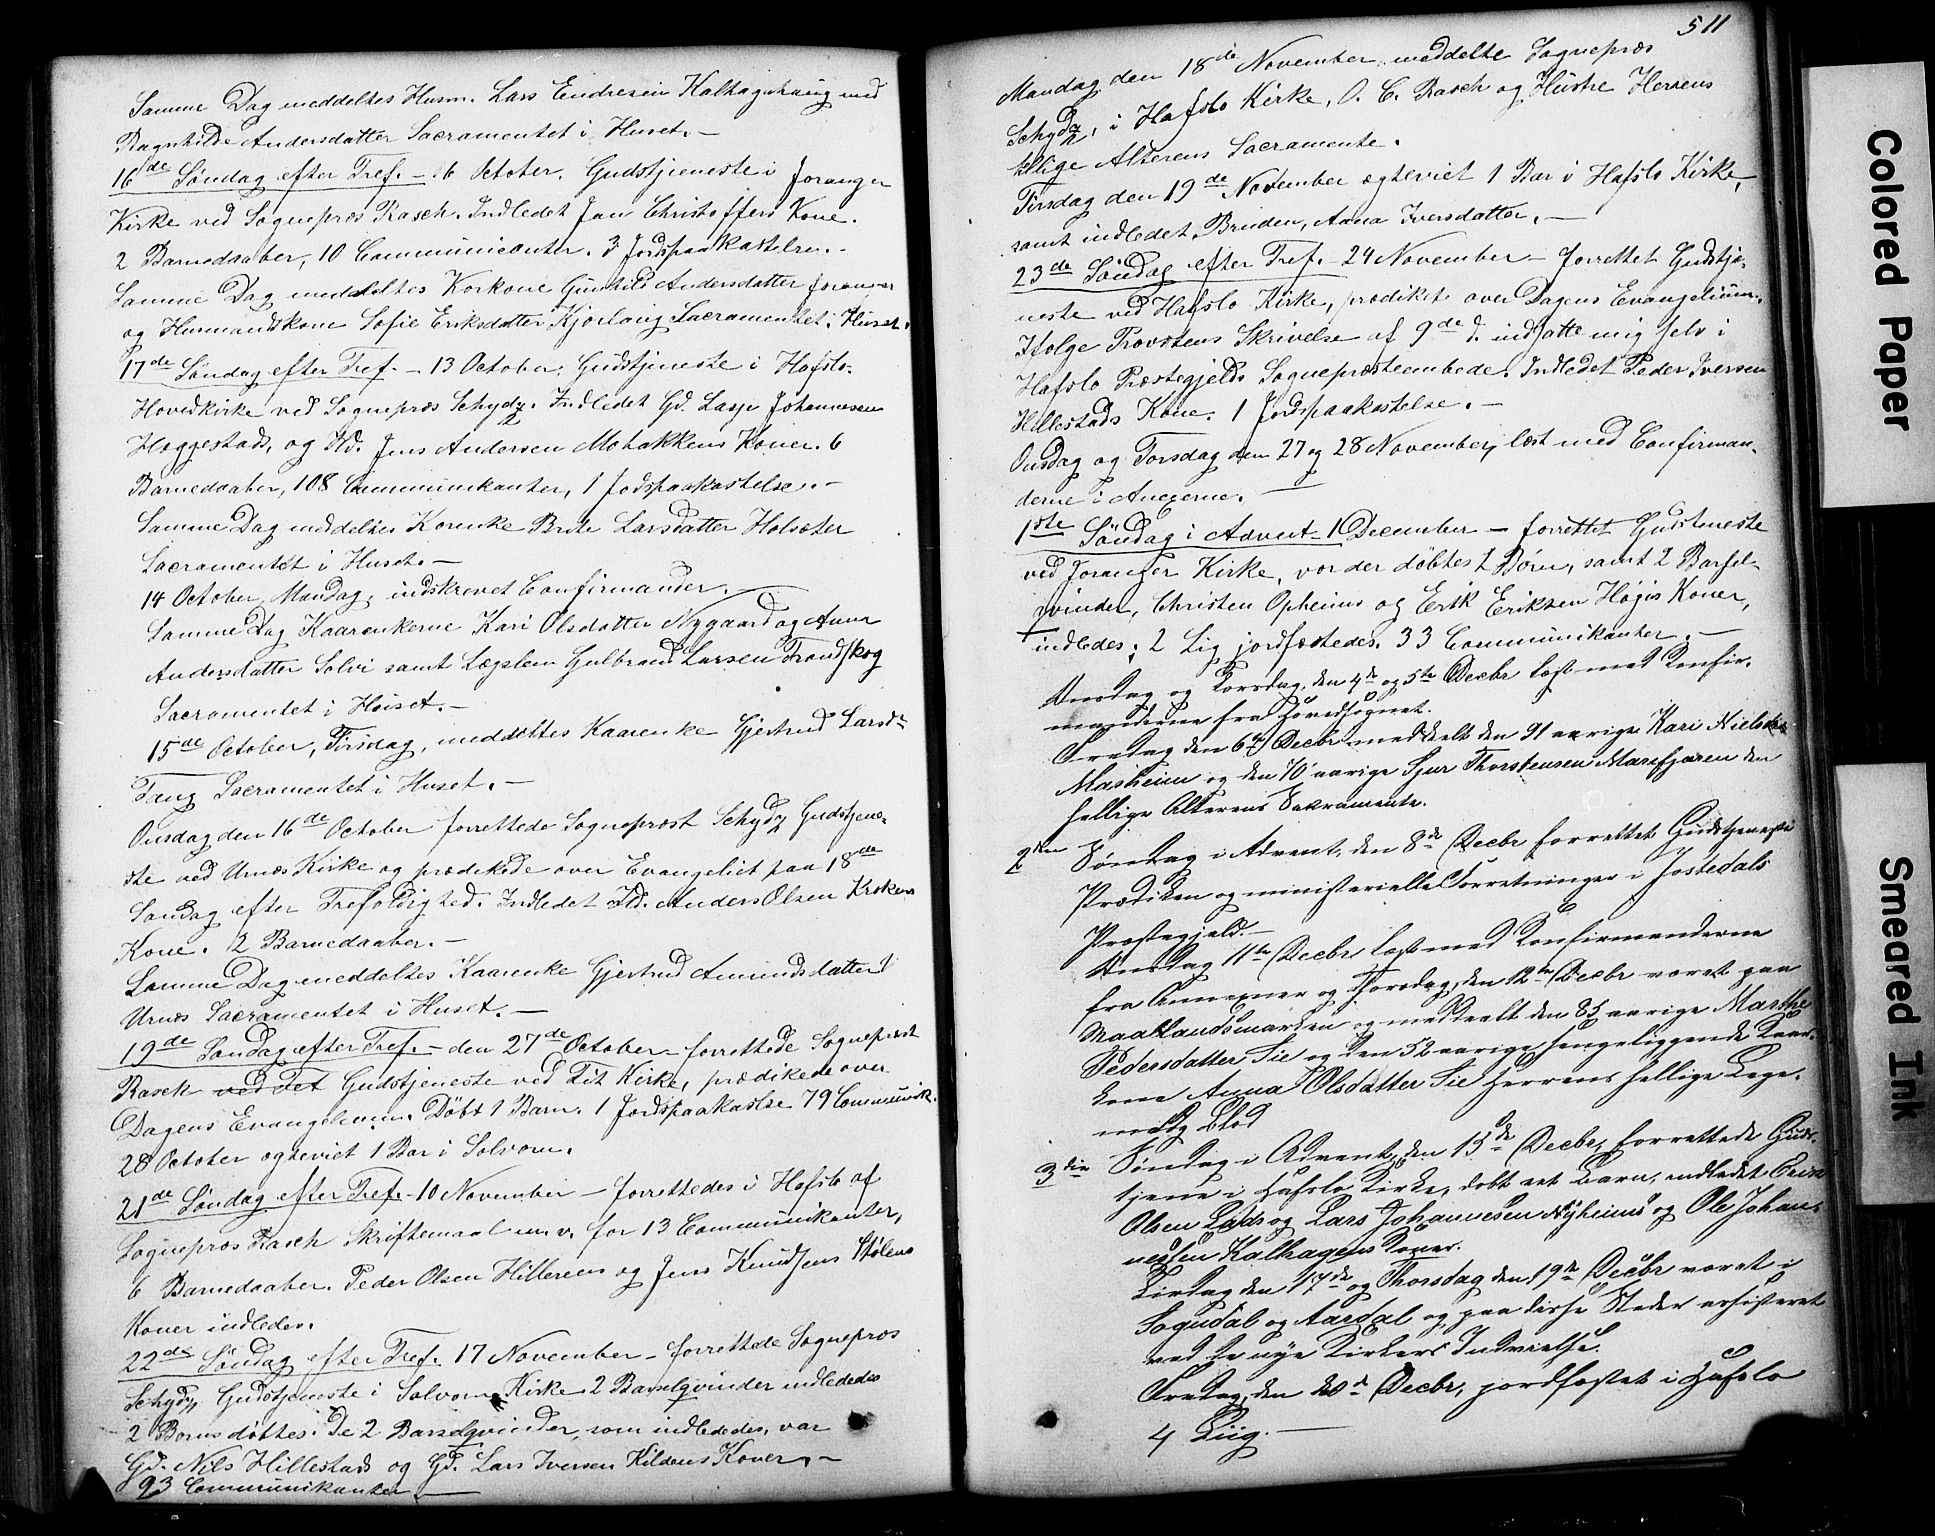 Samme Dag meddeltes Husm. Lars Endresen Kalhagehaug med
Ragnhilde Andersdatter Sacramentet i Huset. –
16de Søndag efter Tref. – 6 October. Gudstjeneste i Joranger
Kirke ved Sognepræs Rasch. Indledet Jan Christoffers Kone.
2 Barnedaaber, 10 Communicanter. 3 Jordspaakastelser. –
Samme Dag meddeltes Korkone Gunhild Andersdatter Joranger
og Husmandskone Sofie Eriksdatter Kjørlaug Sacramentet i Huset.
17de Søndag efter Tref. – 13 October. Gudstjeneste i Hafslo
Hovedkirke ved Sognepræs Schydz. Indledet Gd. Lasse Johannesen
Heggestads, og Hd. Jens Andersen Mohakkens Koner. 6
Barnedaaber, 108 Communikanter, 1 Jodspaakastelse. –
Samme Dag meddeltes Korenke Brite Larsdatter Holsæter
Sacramentet i Huset. –
14 October, Mandag, indskrevet Confirmander.
Samme Dag Kaarenkerne Kari Olsdatter Nygaard og Anna
Andersdatter Solvi samt Lægslem Gulbrand Larsen Trondskog
Sacramentet i Huset. –
15de October, Tirsdag, meddeltes Kaarenke Gjertrud Larsdr
Tang Sacramentet i Huset. –
Onsdag den 16de October forrettede Sognepræst Schydz Gudstjene-
ste ved Urnes Kirke og prædikede over Evangeliet paa 18de
Søndag efter Trefoldighed. Indledet Hd. Anders Olsen Krokens
Kone. 2 Barnedaaber. –
Samme Dag meddeltes Kaarenke Gjertrud Amundsdatter
Urnes Sacramentet i Huset. –
19de Søndag efter Tref. – den 27de October – forrettede Sognepræst
Rasch ved Fet Gudstjeneste ved Fet Kirke, prædikede over
Dagens Evangelium. Døbt 1 Barn. 1 Jordspaakastlse 79 Communik.
28 October ægteviet 1 Par i Solvorn.
21de Søndag efter Tref. – 10 November – forrettedes i Hafslo af
Sognepræs Rasch Skriftemaal m.v. for 13 Communikanter,
6 Barnedaaber. Peder Olsen Hillerens og Jens Knudsens Stølens
Koner indledes.
22de Søndag efter Tref. 17 November – forrettede Sognepræs
Schydz Gudstjeneste i Solvorn Kirke 2 Barselqvinder indlededes
2 Børns døbtes. De 2 Barselqvinder, som indlededes, var
Gd. Nils Hillestads og Gd. Lars Iversen Kildens Koner. –
93 Communikanter. –
511
Mandag den 18de November meddelte Sognepræs
Schydz, i Hafslo Kirke, O. C. Rasch og Hustre Herrens
hellige Alterens Sacramente.
Tirsdag den 19de November ægteviet 1 Par i Hafslo Kirke,
samt indledet Bruden, Anna Iversdatter. –
23de Søndag efter Tref. 24 November – forrettet Gudstje-
neste ved Hafslo Kirke, prædiket over Dagens Evangelium.
Ifølge Provstens Skrivelse af 9de d. indsatte mig selv i
Hafslo Præstegjelds Sognepræsteembede. Indledet Peder Iversen
Hillestads Kone. 1 Jordspaakastelse. –
Onsdag og Torsdag den 27 og 28 November, læst med Confirman-
derne i Anexerne. –
1ste Søndag i Advent – 1 December – forrettet Gudsteneste
ved Joranger Kirke, vor der døbtes 2 Børn, samt 2 Barsel-
qvinder, Christen Opheims og Erik Eriksen Høgis Koner,
indledes; 2 Lig jordfæstedes. 33 Communikanter. –
Onsdag og Torsdag, den 4de og 5te Decbr læst med Konfir-
manderne fra Hovedsognet.
Fredag den 6te Decbr meddeelt den 91 aarige Kari Nielsdtr
Masheim og den 70 aarige Sjur Thorstensen Marefjæren den
hellige Alterens Sakramente.
2den Søndag i Advent, den 8de Decbr forrettet Gudstjeneste
Prædiken og ministerielle Forretninger i Jostedals
Præstegjeld. –
Onsdag 11te Decbr læst med Konfirmanderne
fra Annexerne og Thorsdag, den 12te Decbr været paa
og meddeelt den 83 aarige Marthe
Pedersdatter Sie og den 52 aarige sengeliggende Kaar-
kone Anna Olsdatter Sie Herrens hellige Lege-
me og Blod
3die Søndag i Advent, den 15de Decbr, forrettede Guds-
tjene i Hafslo Kirke, døbt eet Barn, indledet
Olsen Lads og Lars Johannesen Nyheims og Ole Johan-
nessen Kalhagens Koner.
Tirsdag den 17de og Thorsdag den 19de Decbr været i
Sogndal og Aardal og paa disse Steder assisteret
ved de nye Kirkers Indvielse.
Fredag, den 20de Decbr, jordfæstet i Hafslo
4 Liig. –
Colored Paper
Smeared Ink